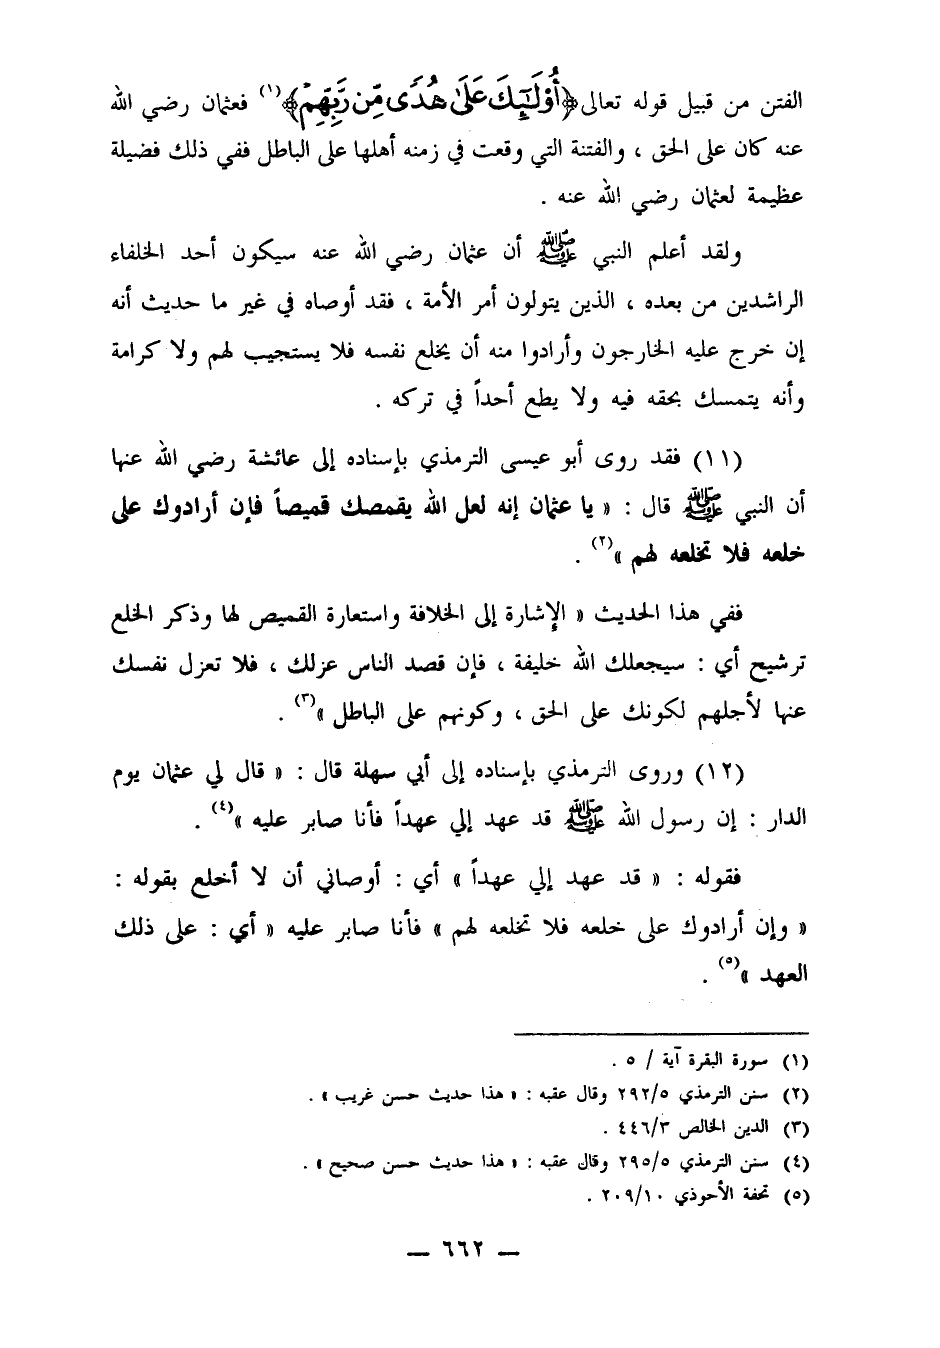 الفتن من قبيل قوله تعالى ﴿أُوْلَـٰٓئِكَ عَلَىٰ هُدًى مِّن رَّبِّهِمْ﴾(١) فعثمان رضي الله
عنه كان على الحق ، والفتنة التي وقعت في زمنه أهلها على الباطل ففي ذلك فضيلة
عظيمة لعثمان رضي الله عنه .
ولقد أعلم النبي ﷺ أن عثمان رضي الله عنه سيكون أحد الخلفاء
الراشدين من بعده ، الذين يتولون أمر الأمة ، فقد أوصاه في غير ما حديث أنه
إن خرج عليه الخارجون وأرادوا منه أن يخلع نفسه فلا يستجيب لهم ولا كرامة
وأنه يتمسك بحقه فيه ولا يطع أحداً في تركه .
(١١) فقد روى أبو عيسى الترمذي بإسناده إلى عائشة رضي الله عنها
أن النبي ﷺ قال : « يا عثمان إنه لعل الله يقمصك قميصاً فإن أرادوك على
خلعه فلا تخلعه لهم »(٢) .
ففي هذا الحديث « الإشارة إلى الخلافة واستعارة القميص لها وذكر الخلع
ترشيح أي : سيجعلك الله خليفة ، فإن قصد الناس عزلك ، فلا تعزل نفسك
عنها لأجلهم لكونك على الحق ، وكونهم على الباطل »(٣) .
(١٢) وروى الترمذي بإسناده إلى أبي سهلة قال : « قال لي عثمان يوم
الدار : إن رسول الله ﷺ قد عهد إلي عهداً فأنا صابر عليه »(٤) .
فقوله : « قد عهد إلي عهداً » أي : أوصاني أن لا أخلع بقوله :
« وإن أرادوك على خلعه فلا تخلعه لهم » فأنا صابر عليه « أي : على ذلك
العهد »(٥) .
(١) سورة البقرة آية / ٥ .
(٢) سنن الترمذي ٢٩٢/٥ وقال عقبه : « هذا حديث حسن غريب » .
(٣) الدين الخالص ٤٤٦/٣ .
(٤) سنن الترمذي ٢٩٥/٥ وقال عقبه : « هذا حديث حسن صحيح » .
(٥) تحفة الأحوذي ٢٠٩/١٠ .
— ٦٦٢ —